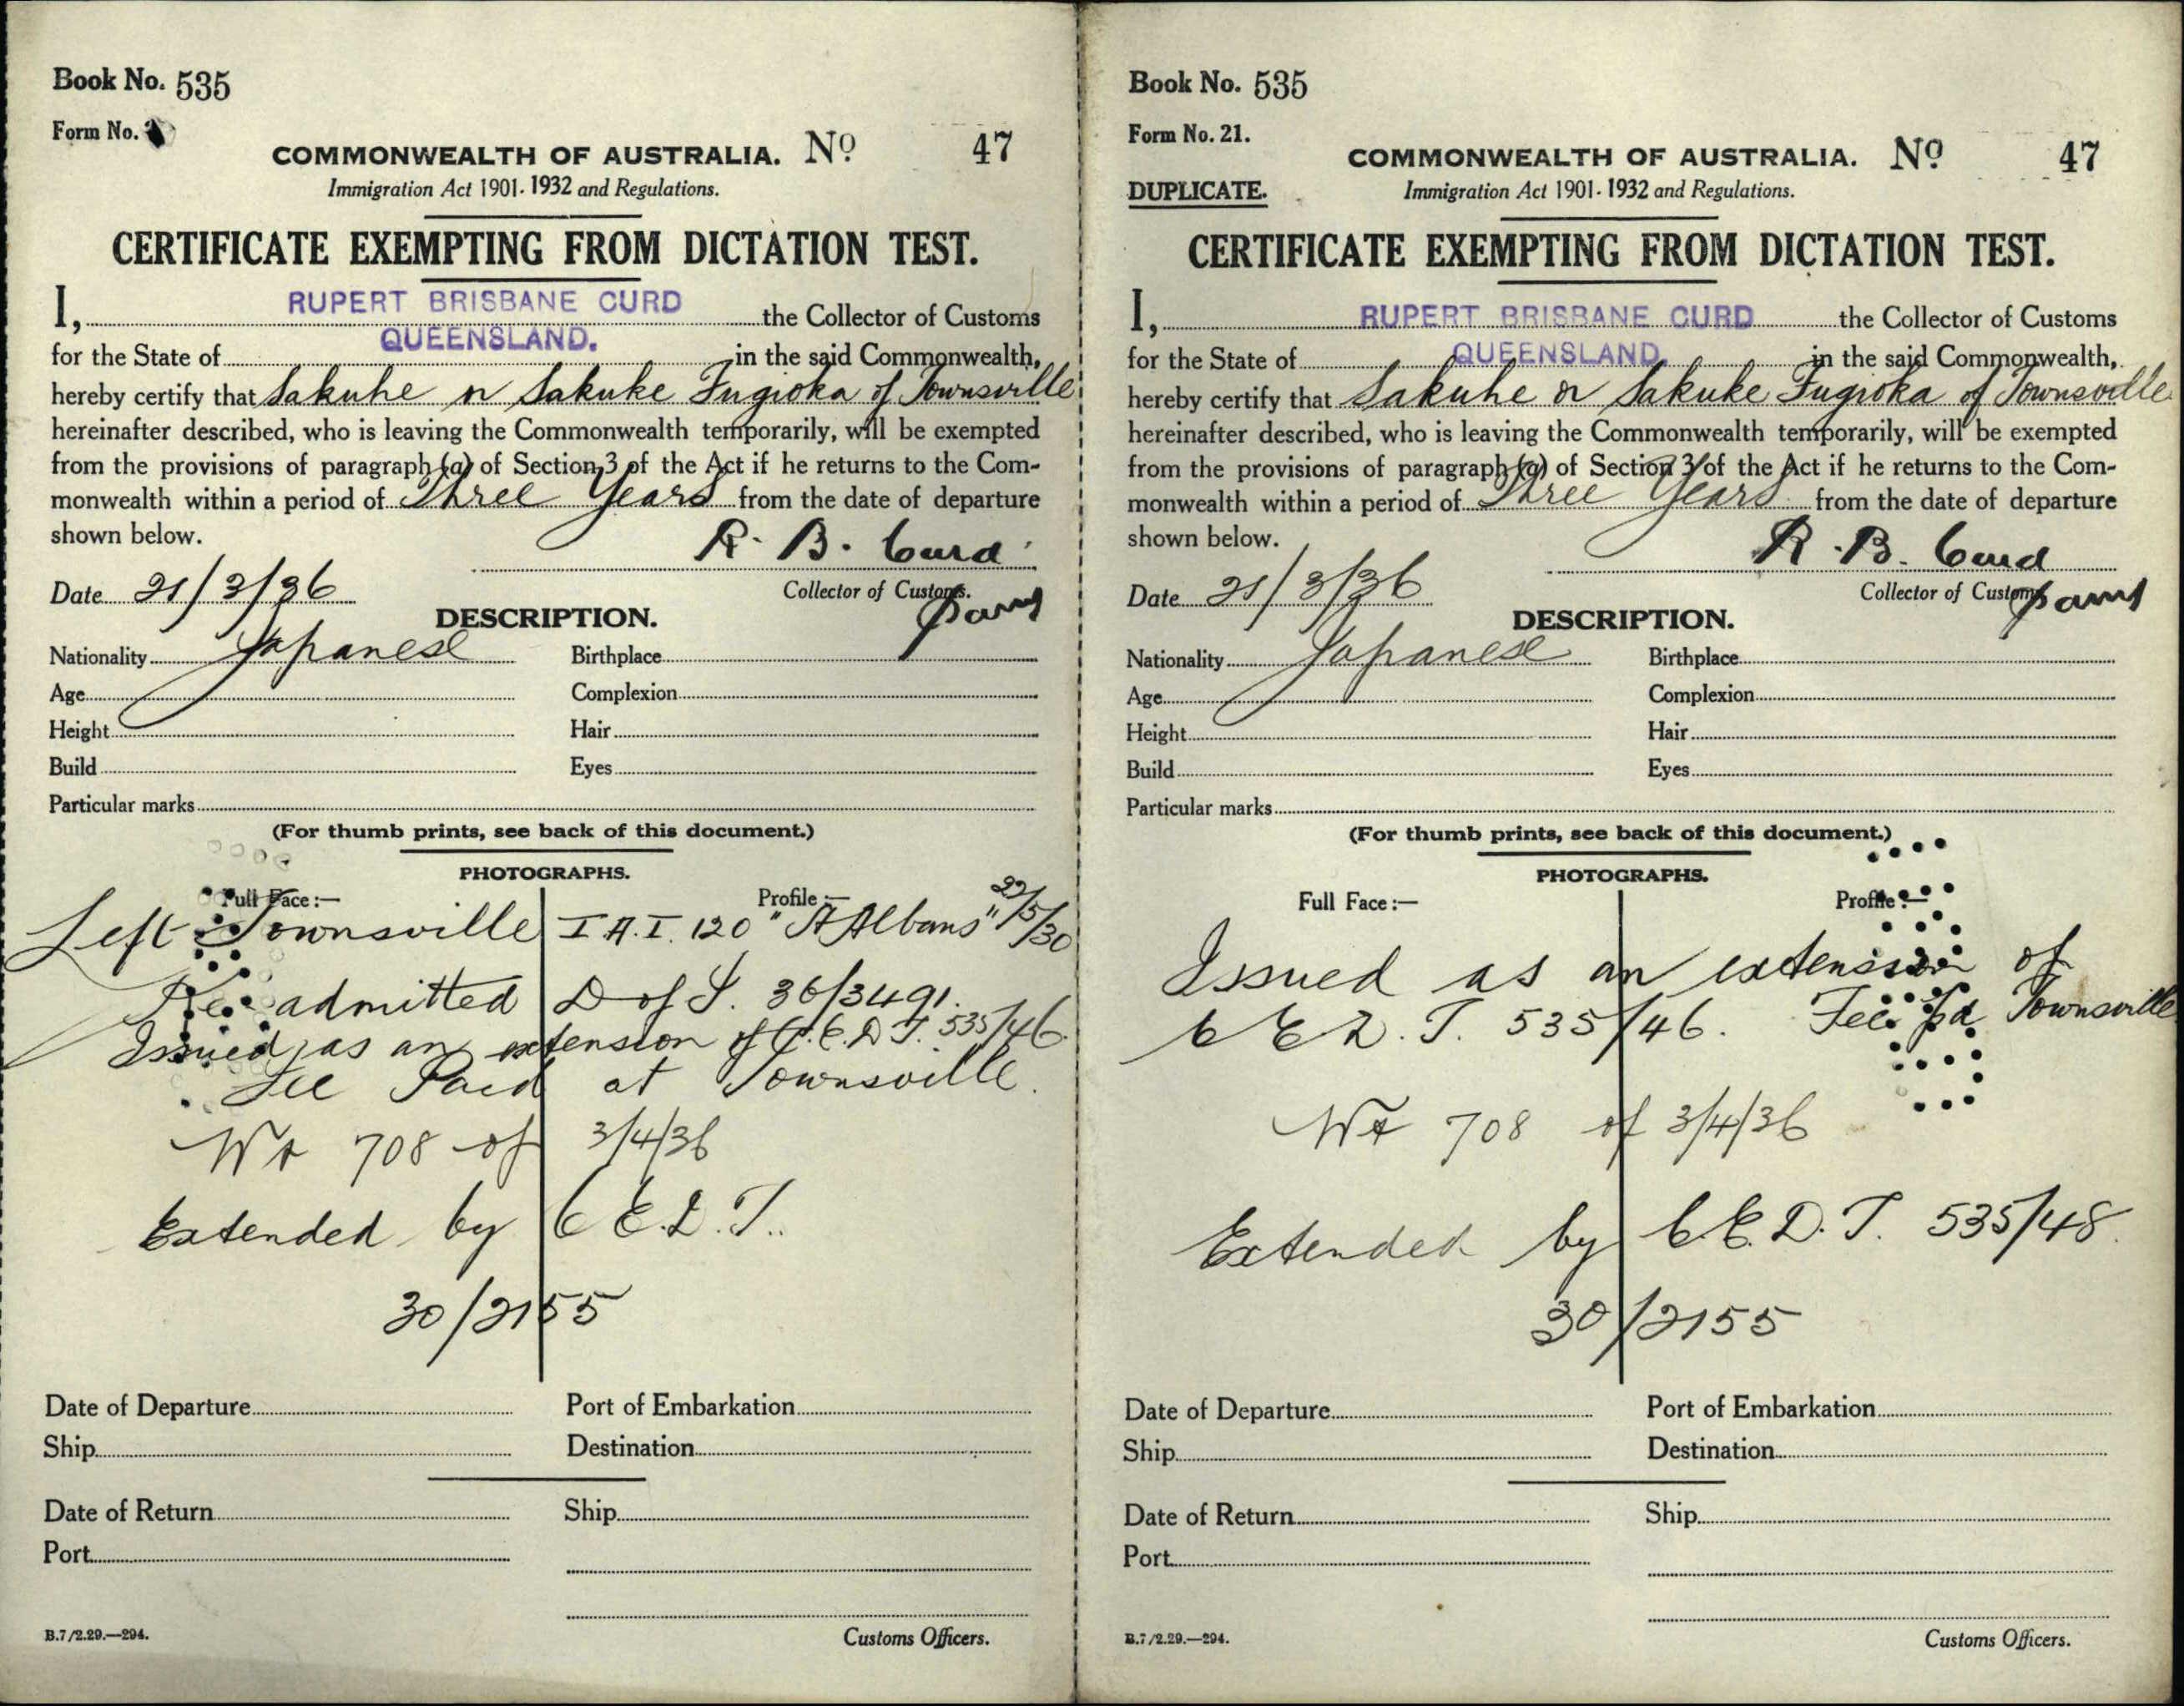 Book No. 535
Form No.
COMMONWEALTH OF AUSTRALIA. No 47
Immigration Act 1901-1932 and Regulations.
CERTIFICATE EXEMPTING FROM DICTATION TEST.
I, RUPERT BRISBANE CURD the Collector of Customs
for the State of QUEENSLAND. in the said Commonwealth,
hereby certify that Sakuhe or Sakuke Fugioka of Townsville
hereinafter described, who is leaving the Commonwealth temporarily, will be exempted
from the provisions of paragraph (a) of Section 3 of the Act if he returns to the Com-
monwealth within a period of Three Years from the date of departure
shown below.
R. B. Curd
Date 21/3/36
Collector of Customs.
DESCRIPTION.
Nationality Japanese Birthplace
Age Complexion
Height Hair
Build Eyes
Particular marks
(For thumb prints, see back of this document.)
PHOTOGRAPHS.
Full Face:— Profile:—
Left Townsville I.A.I. 120 "St Albans" 22/5/30
Re-admitted D of I. 36/3491.
Issued as an extension of C.E.D.T. 535/46.
Fee Paid at Townsville.
708 of 3/4/36
Extended by C.E.D.T..
30/2155
Date of Departure Port of Embarkation
Ship Destination
Date of Return Ship
Port
B.7/2.29.—294. Customs Officers.
Book No. 535
Form No. 21.
COMMONWEALTH OF AUSTRALIA. No 47
DUPLICATE. Immigration Act 1901-1932 and Regulations.
CERTIFICATE EXEMPTING FROM DICTATION TEST.
I, RUPERT BRISBANE CURD the Collector of Customs
for the State of QUEENSLAND. in the said Commonwealth,
hereby certify that Sakuhe or Sakuke Fugioka of Townsville
hereinafter described, who is leaving the Commonwealth temporarily, will be exempted
from the provisions of paragraph (a) of Section 3 of the Act if he returns to the Com-
monwealth within a period of Three Years from the date of departure
shown below.
R. B. Curd
Date 21/3/36
Collector of Customs
DESCRIPTION.
Nationality Japanese Birthplace
Age Complexion
Height Hair
Build Eyes
Particular marks
(For thumb prints, see back of this document.)
PHOTOGRAPHS.
Full Face:— Profile:—
Issued as an extension of
C.E.D.T. 535/46. Fee Pd Townsville
708 of 3/4/36
Extended by C.E.D.T. 535/48.
30/2155
Date of Departure Port of Embarkation
Ship Destination
Date of Return Ship
Port
B.7/2.29.—294. Customs Officers.